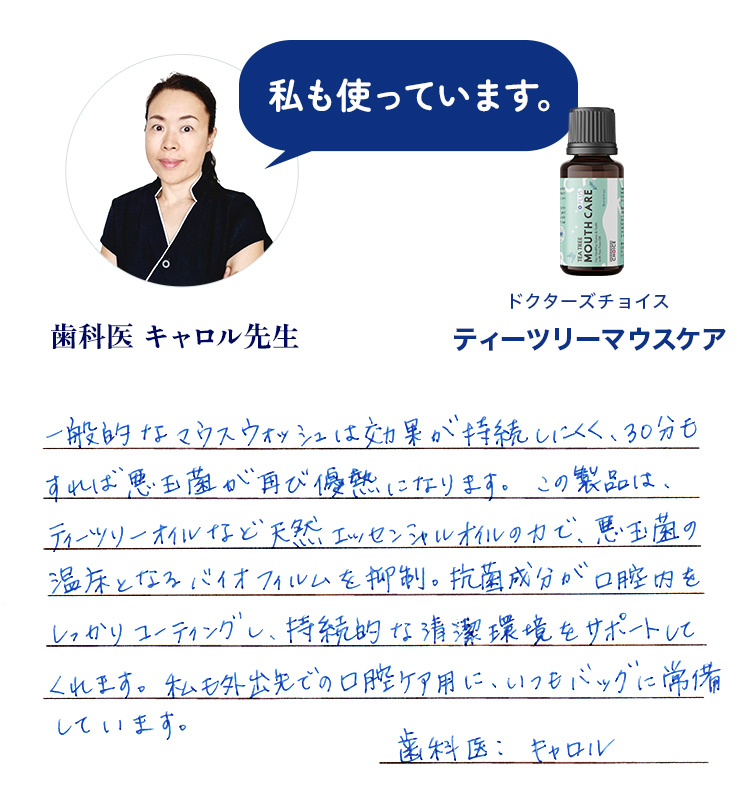 私も使っています。
TEA TREE
MOUTH CARE
歯科医 キャロル先生
ドクターズチョイス
ティーツリーマウスケア
一般的なマウスウォッシュは効果が持続しにくく、30分も
すれば悪玉菌が再び優熱になります。この製品は、
ティーツリーオイルなど天然エッセンシャルオイルの力で、悪玉菌の
温床となるバイオフィルムを抑制。抗菌成分が口腔内を
しっかりコーティングし、持続的な清潔環境をサポートして
くれます。私も外出先での口腔ケア用に、いつもバッグに常備
しています。
歯科医：キャロル